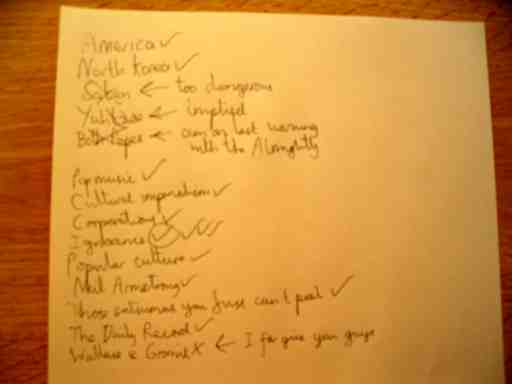 America ✓
North Korea ✓
Satan ← too dangerous
← implied
Both Popes ← am on last warning
with the Almighty
Pop music ✓
Cultural imperialism ✓
Corporations ✓
Ignorance ✓ ✓✓✓
Popular culture ✓
Neil Armstrong ✓
Those satsumas you just can't peel ✓
The Daily Record ✓
Wallace & Gromit X ← I forgive you guys